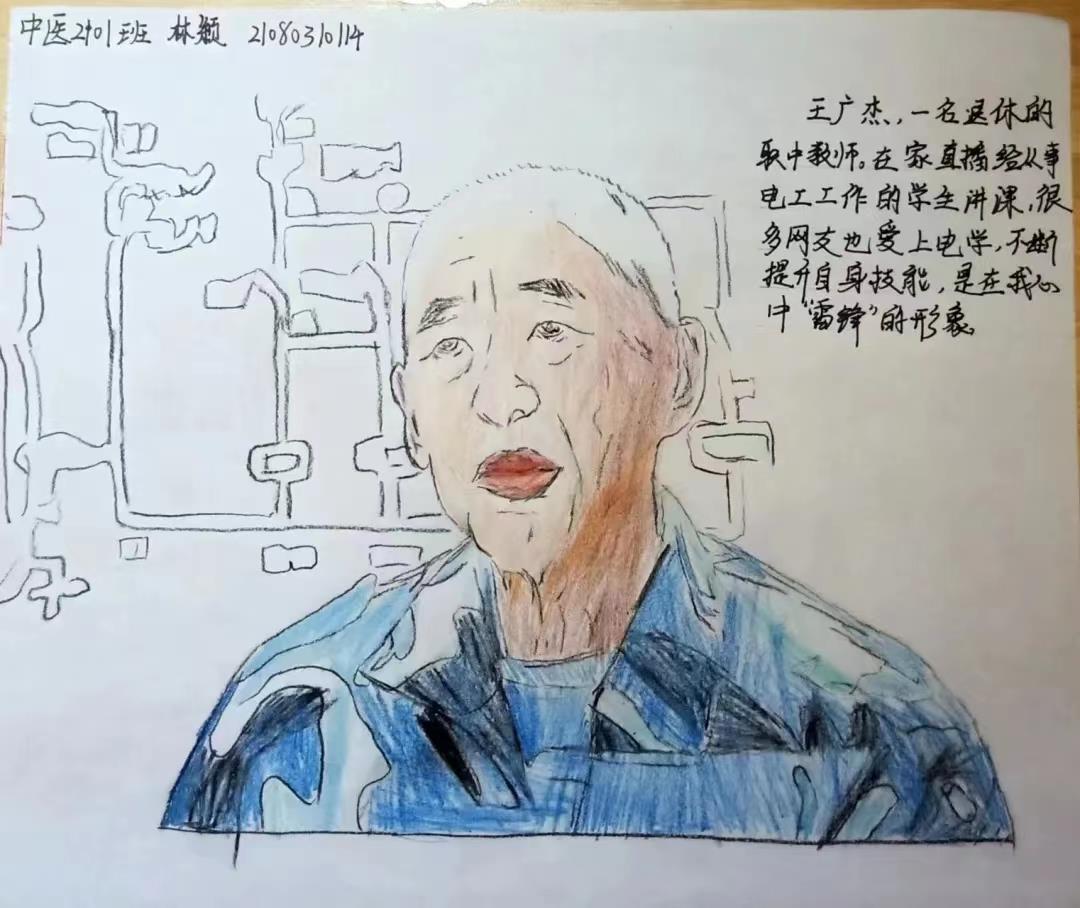 中医2101班 林颖 21080310114
王广杰，一名退休的
职中教师。在家直播给从事
电工工作的学生讲课，很
多网友也爱上电学，不断
提升自身技能，是在我心
中“雷锋”的形象。